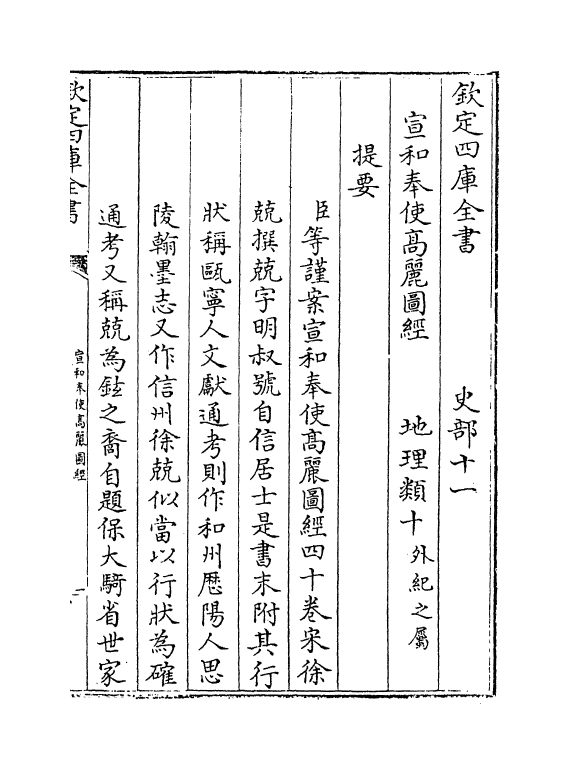 欽定四庫全書 史部十一
宣和奉使髙麗圖經 地理類十外紀之屬
提要
臣等謹案宣和奉使髙麗圖經四十卷宋徐
兢撰兢字明叔號自信居士是書末附其行
狀稱甌寧人文獻通考則作和州歴陽人思
陵翰墨志又作信州徐兢似當以行狀為確
通考又稱兢為鉉之裔自題保大騎省世家
欽定四庫全書
宣和奉使髙麗圖經